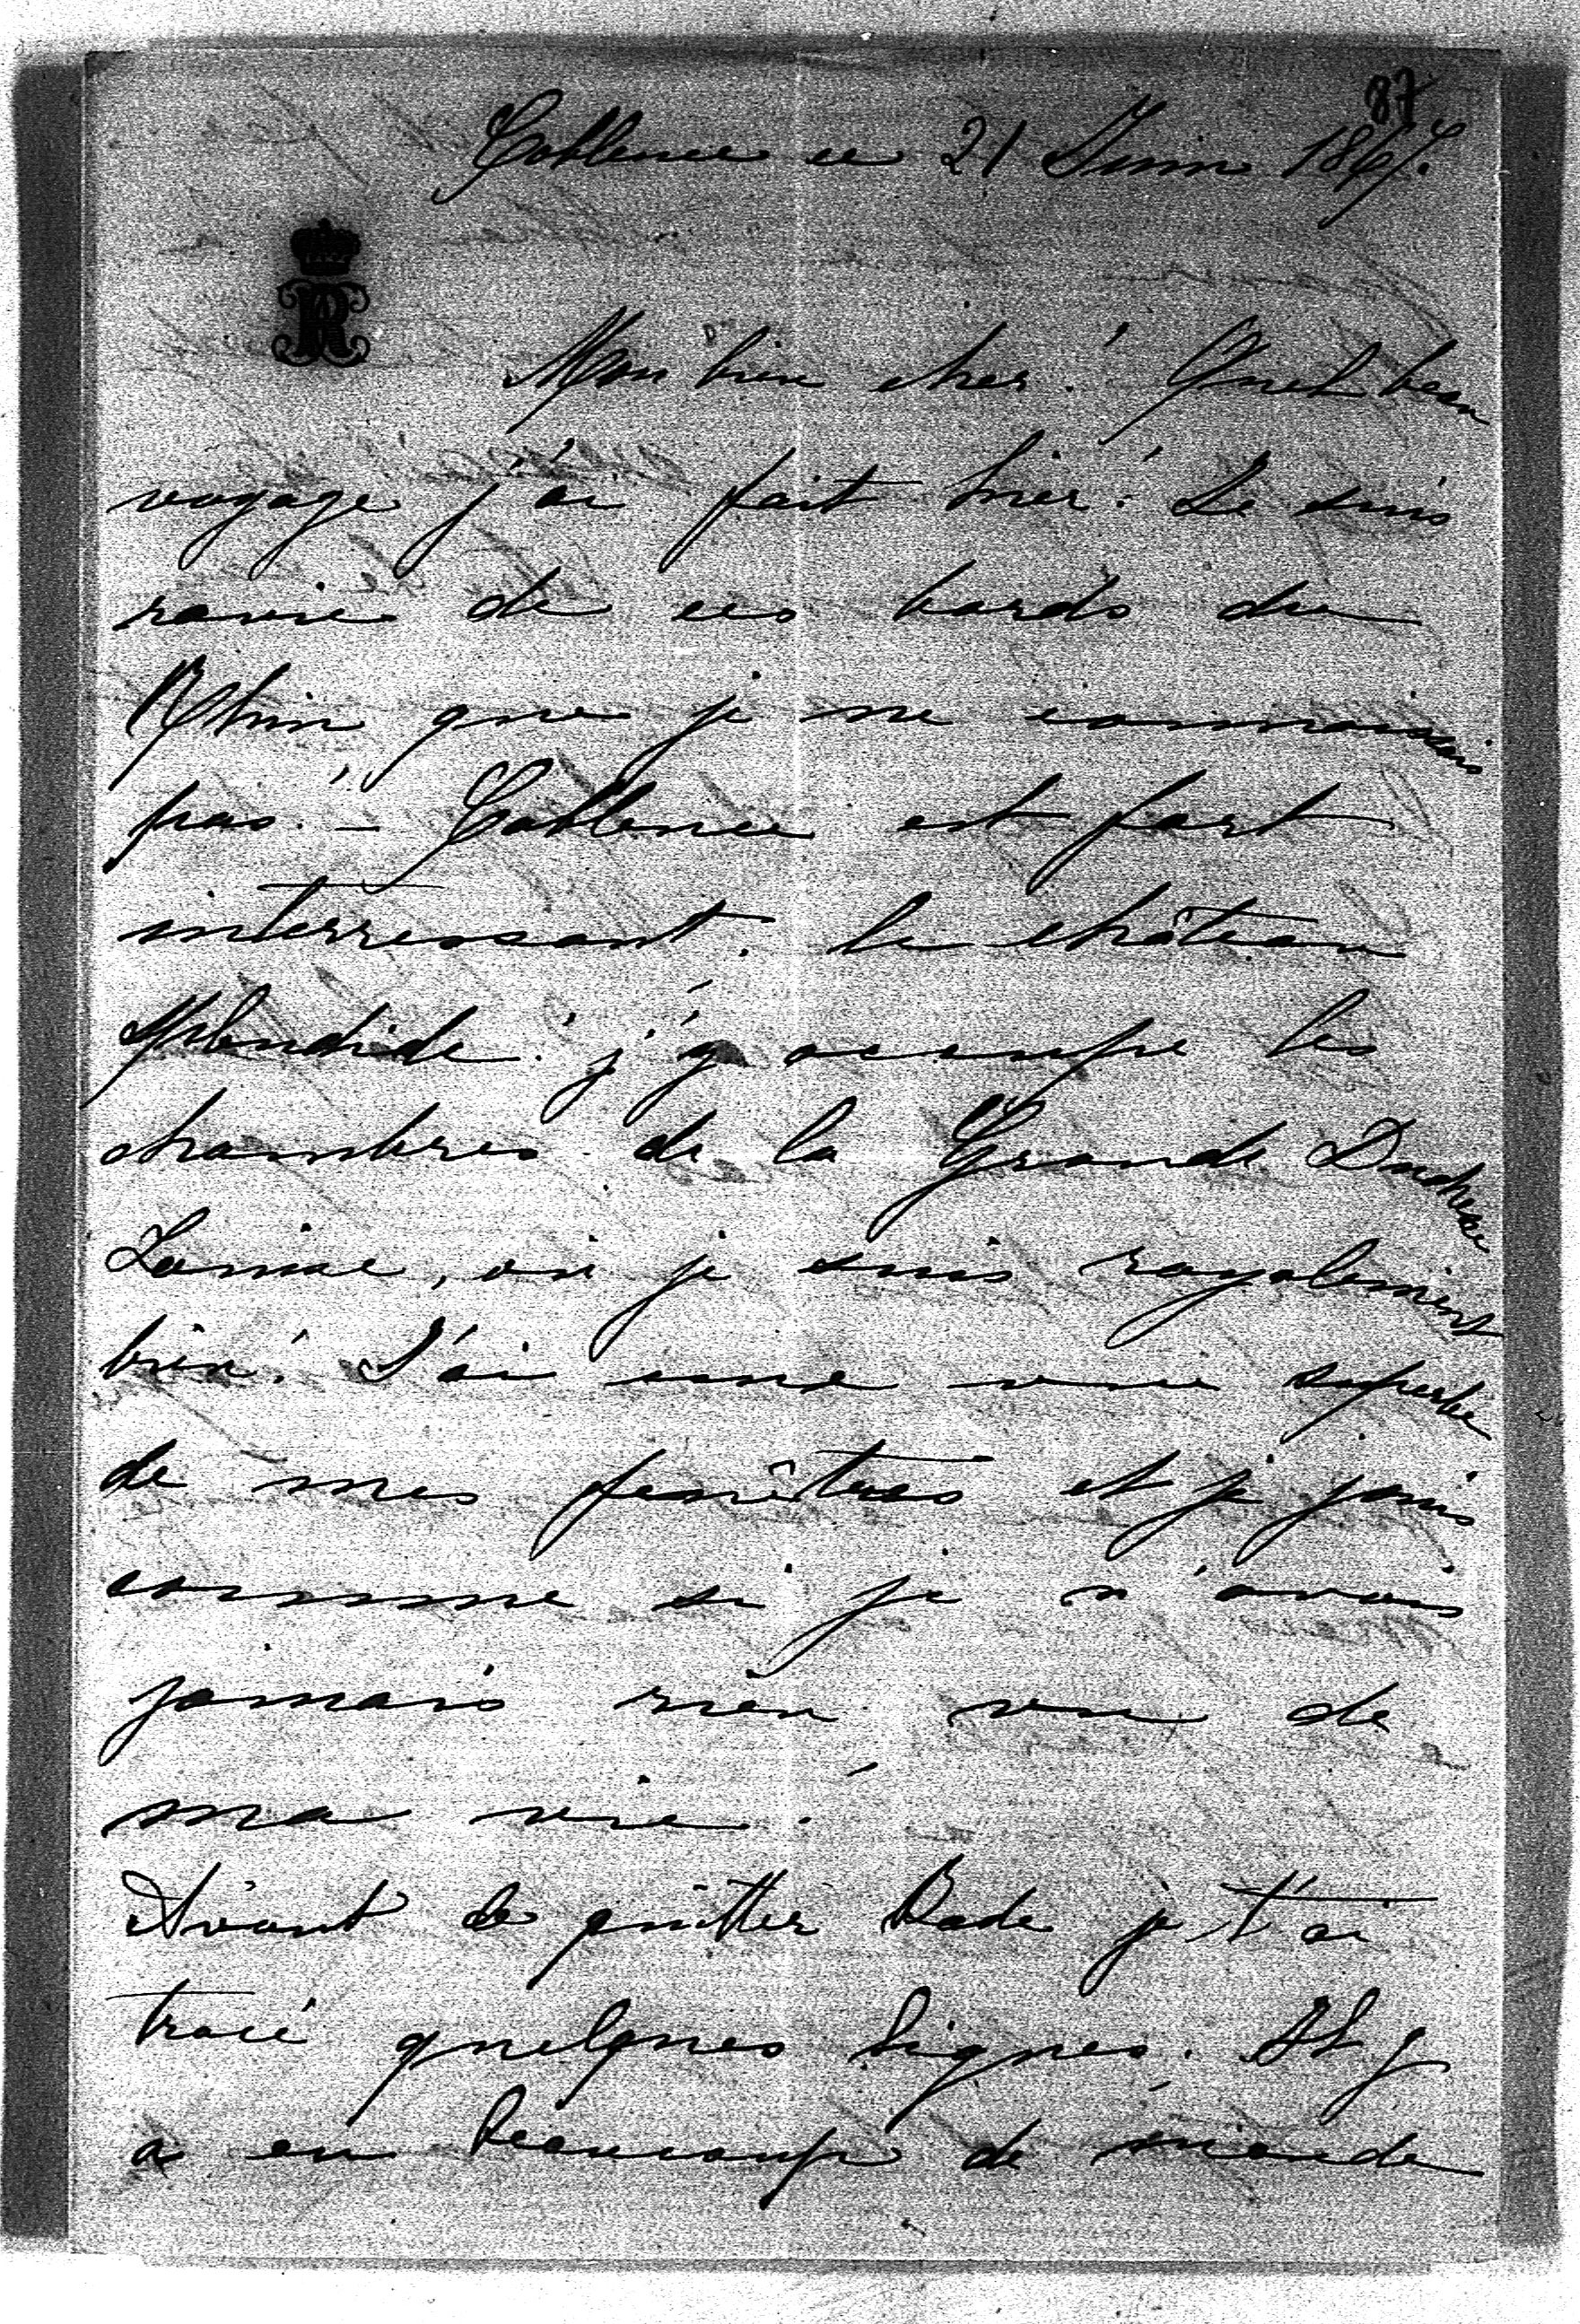 87
Coblence ce 21 Juin 1867.
Mon bien cher! Quel beau
voyage j'ai fait hier! Je suis
ravie de ces bords du
Rhin que je ne connaissais
pas! – Coblence est fort
interressant, le château
splendide! j'y occupe les
chambres de la Grande Duchesse
Louise, où je suis royalement
bien! J'ai une vue superbe
de mes fenêtres et je jouis
comme si je n'avais
jamais rien vu de
ma vie!
Avant de quitter Bade je t'ai
tracé quelques lignes. Il y
a eu beaucoup de monde